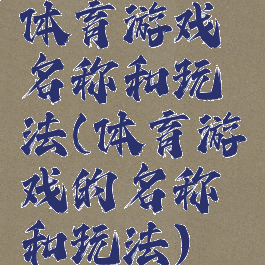 体育游戏
名称和玩
法(体育游
戏的名称
和玩法)